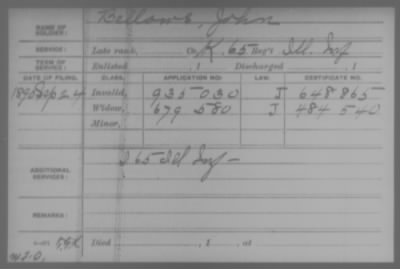 NAME OF SOLDIER: Bellows, John
SERVICE: Late rank, Co. K, 65 Reg't Ill. Inf
TERM OF SERVICE: Enlisted , 1 Discharged , 1
DATE OF FILING. CLASS. APPLICATION NO. LAW. CERTIFICATE NO.
1890 Sep 24 Invalid, 935 030 J 648 865
Widow, 679 580 J 484 540
Minor,
ADDITIONAL SERVICES: 65 Ill Inf
REMARKS:
Died , 1 , at